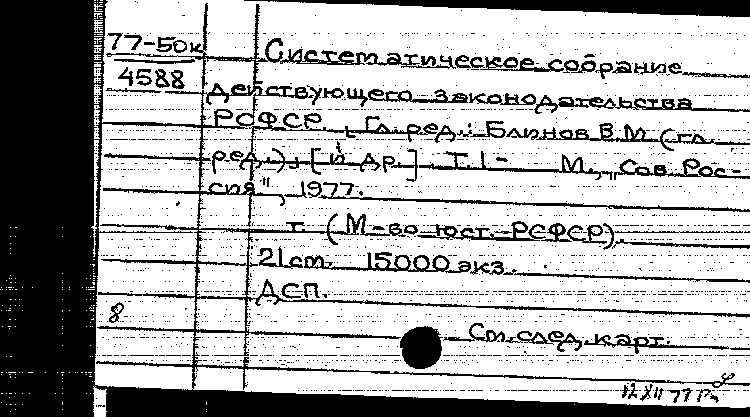 77-50к
4588
Систематическое собрание
действующего законодательства
РСФСР. Гл. ред.: Блинов В.М (гл.
ред.), [и др.] Т. 1- М., „Сов. Рос-
сия", 1977.
т. (М-во юст. РСФСР).
21 см. 15000 экз.
ДСП.
8
См. след. карт.
12 XII 77